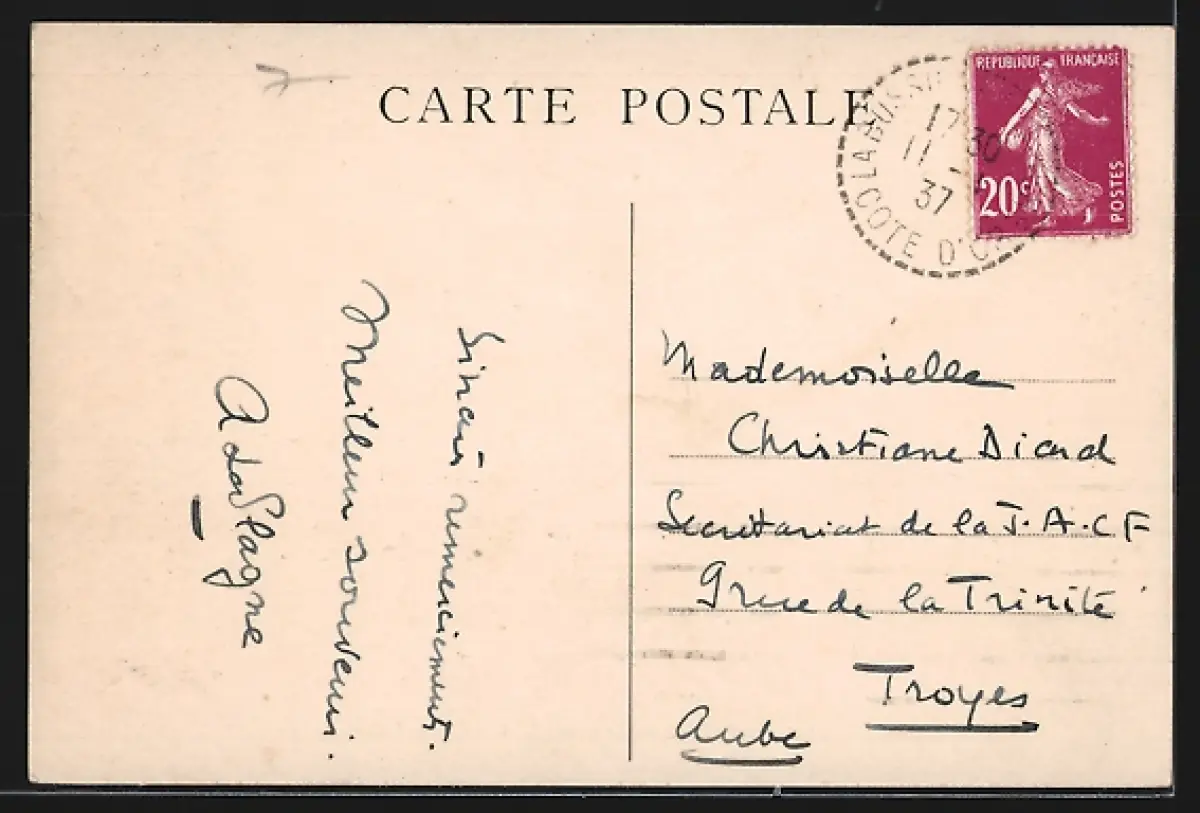 CARTE POSTALE
REPUBLIQUE FRANÇAISE
20c
POSTES
LA BUSSIE
17 30
11 -
37
COTE D'O
Sincères remerciements.
Meilleur souvenir.
A de Plagne
Mademoiselle
Christiane Dicard
Secrétariat de la J.A.C.F
9 rue de la Trinité
Troyes
Aube